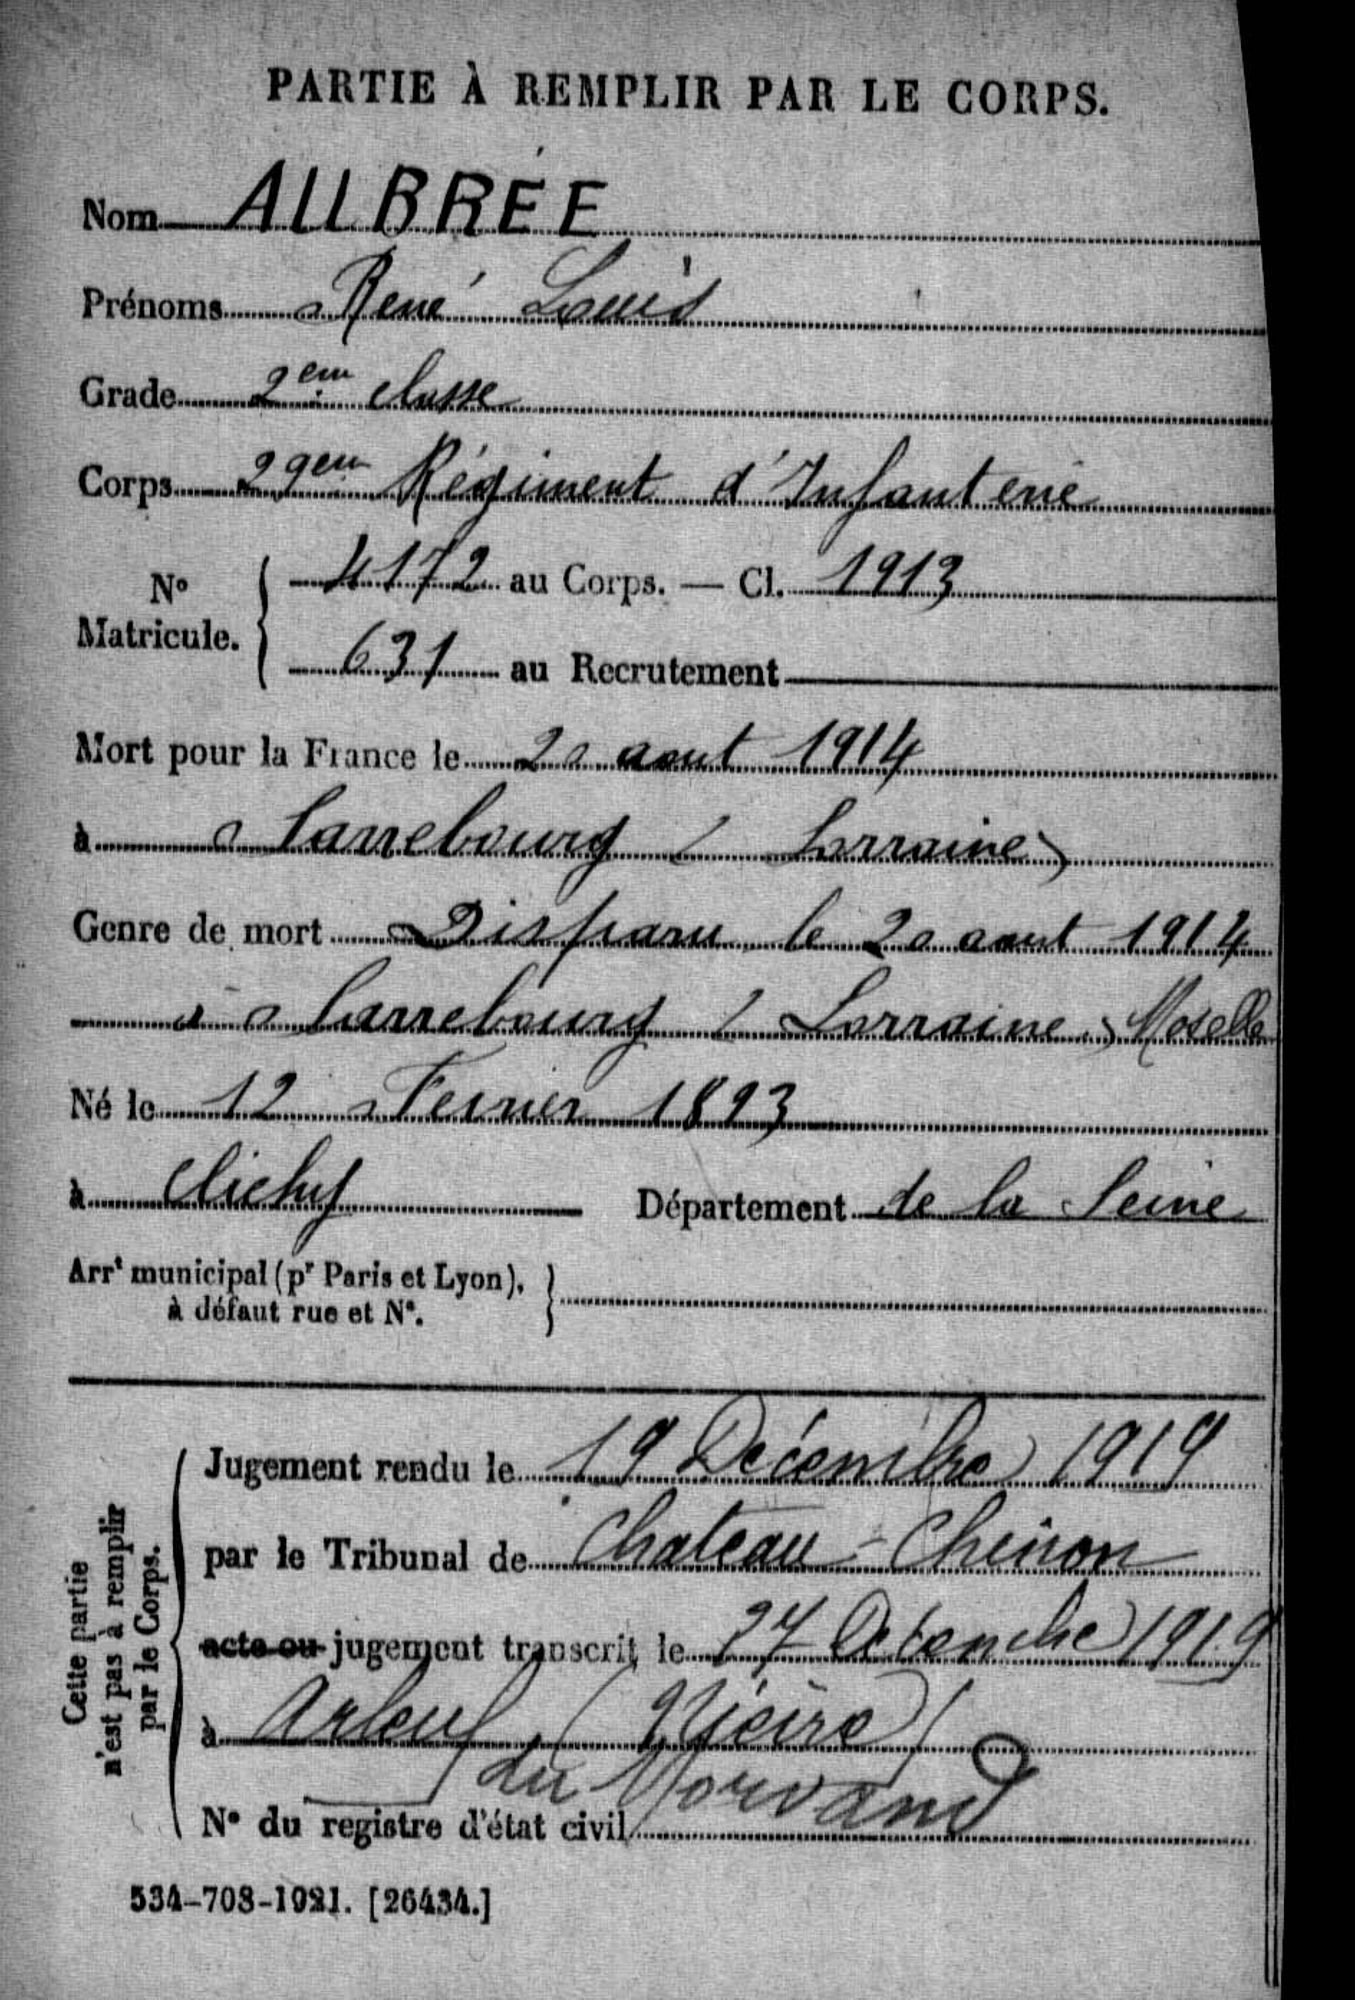 PARTIE À REMPLIR PAR LE CORPS.
Nom AUBRÉE
Prénoms René Louis
Grade 2em classe
Corps 29em Régiment d'Infanterie
N° Matricule. 4172 au Corps. — Cl. 1913
631 au Recrutement
Mort pour la France le 20 aout 1914
à Sarrebourg (Lorraine)
Genre de mort Disparu le 20 aout 1914
à Sarrebourg (Lorraine) Moselle
Né le 12 Fevrier 1893
à Clichy Département de la Seine
Arrt municipal (pr Paris et Lyon),
à défaut rue et N°.
Cette partie
n'est pas à remplir
par le Corps.
Jugement rendu le 19 Décembre 1919
par le Tribunal de Chateau-Chinon
acte ou jugement transcrit le 27 Décembre 1919
à Arleuf (Nièvre)
du Morvand
N° du registre d'état civil
534-708-1921. [26434.]